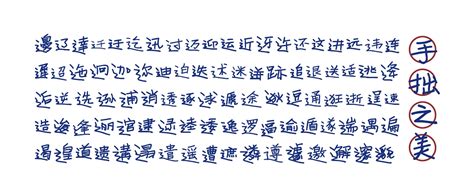 邊辽達迁迂迄迅过迈迎运近迓迕还这进远违连
迢迤迥迦迩迪迫迭述迷迸迹追退送适逃逄
逅逆选逊逋逍透逐逑递途逖逗通逛逝逞速
造逡逢逦逭逮逯逵透逸逻逼逾遁遂遄遇遍
遏遑道遗遘遢遣遥遭遮遴遵遽邀邂邃邈
手拙之美